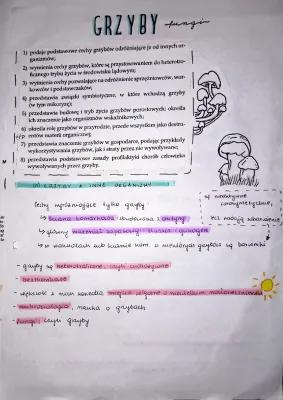 GRZYBY fungi
1) podaje podstawowe cechy grzybów odróżniające je od innych or-
ganizmów;
2) wymienia cechy grzybów, które są przystosowaniem do heterotro-
ficznego trybu życia w środowisku lądowym;
3) wymienia cechy pozwalające na odróżnienie sprzężniowców, wor-
kowców i podstawczaków;
4) przedstawia związki symbiotyczne, w które wchodzą grzyby
(w tym mikoryzę);
5) przedstawia budowę i tryb życia grzybów porostowych; określa
ich znaczenie jako organizmów wskaźnikowych;
6) określa rolę grzybów w przyrodzie, przede wszystkim jako destru-
entów materii organicznej;
7) przedstawia znaczenie grzybów w gospodarce, podaje przykłady
wykorzystywania grzybów, jak i straty przez nie wywoływane;
8) przedstawia podstawowe zasady profilaktyki chorób człowieka
wywoływanych przez grzyby.
GRZYBY A INNE ORGANIZMY
cechy wyróżniające tylko grzyby
↳ ściana komórkowa zbudowana z chityny
↳ główny materiał zapasowy: tłuszcz i glikogen
↳ w wakuolach lub ścianie kom. u niektórych grzybów są barwniki
nieaktywne
fotosyntetycznie,
lecz nadają zabarwienie
- grzyby są heterotroficzne, czyli cudzożywne
- beztkankowe
- większość z nich zasiedla miejsca wilgotne o niewielkim nasłonecznieniu
- mikologia, nauka o grzybach
- fungi, czyli grzyby